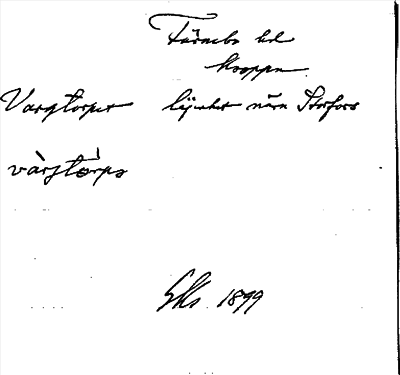 Färnebo hd
Kroppa
Vargtorpet lägenhet nära Storfors
vàrjtòrpə
GKs 1899